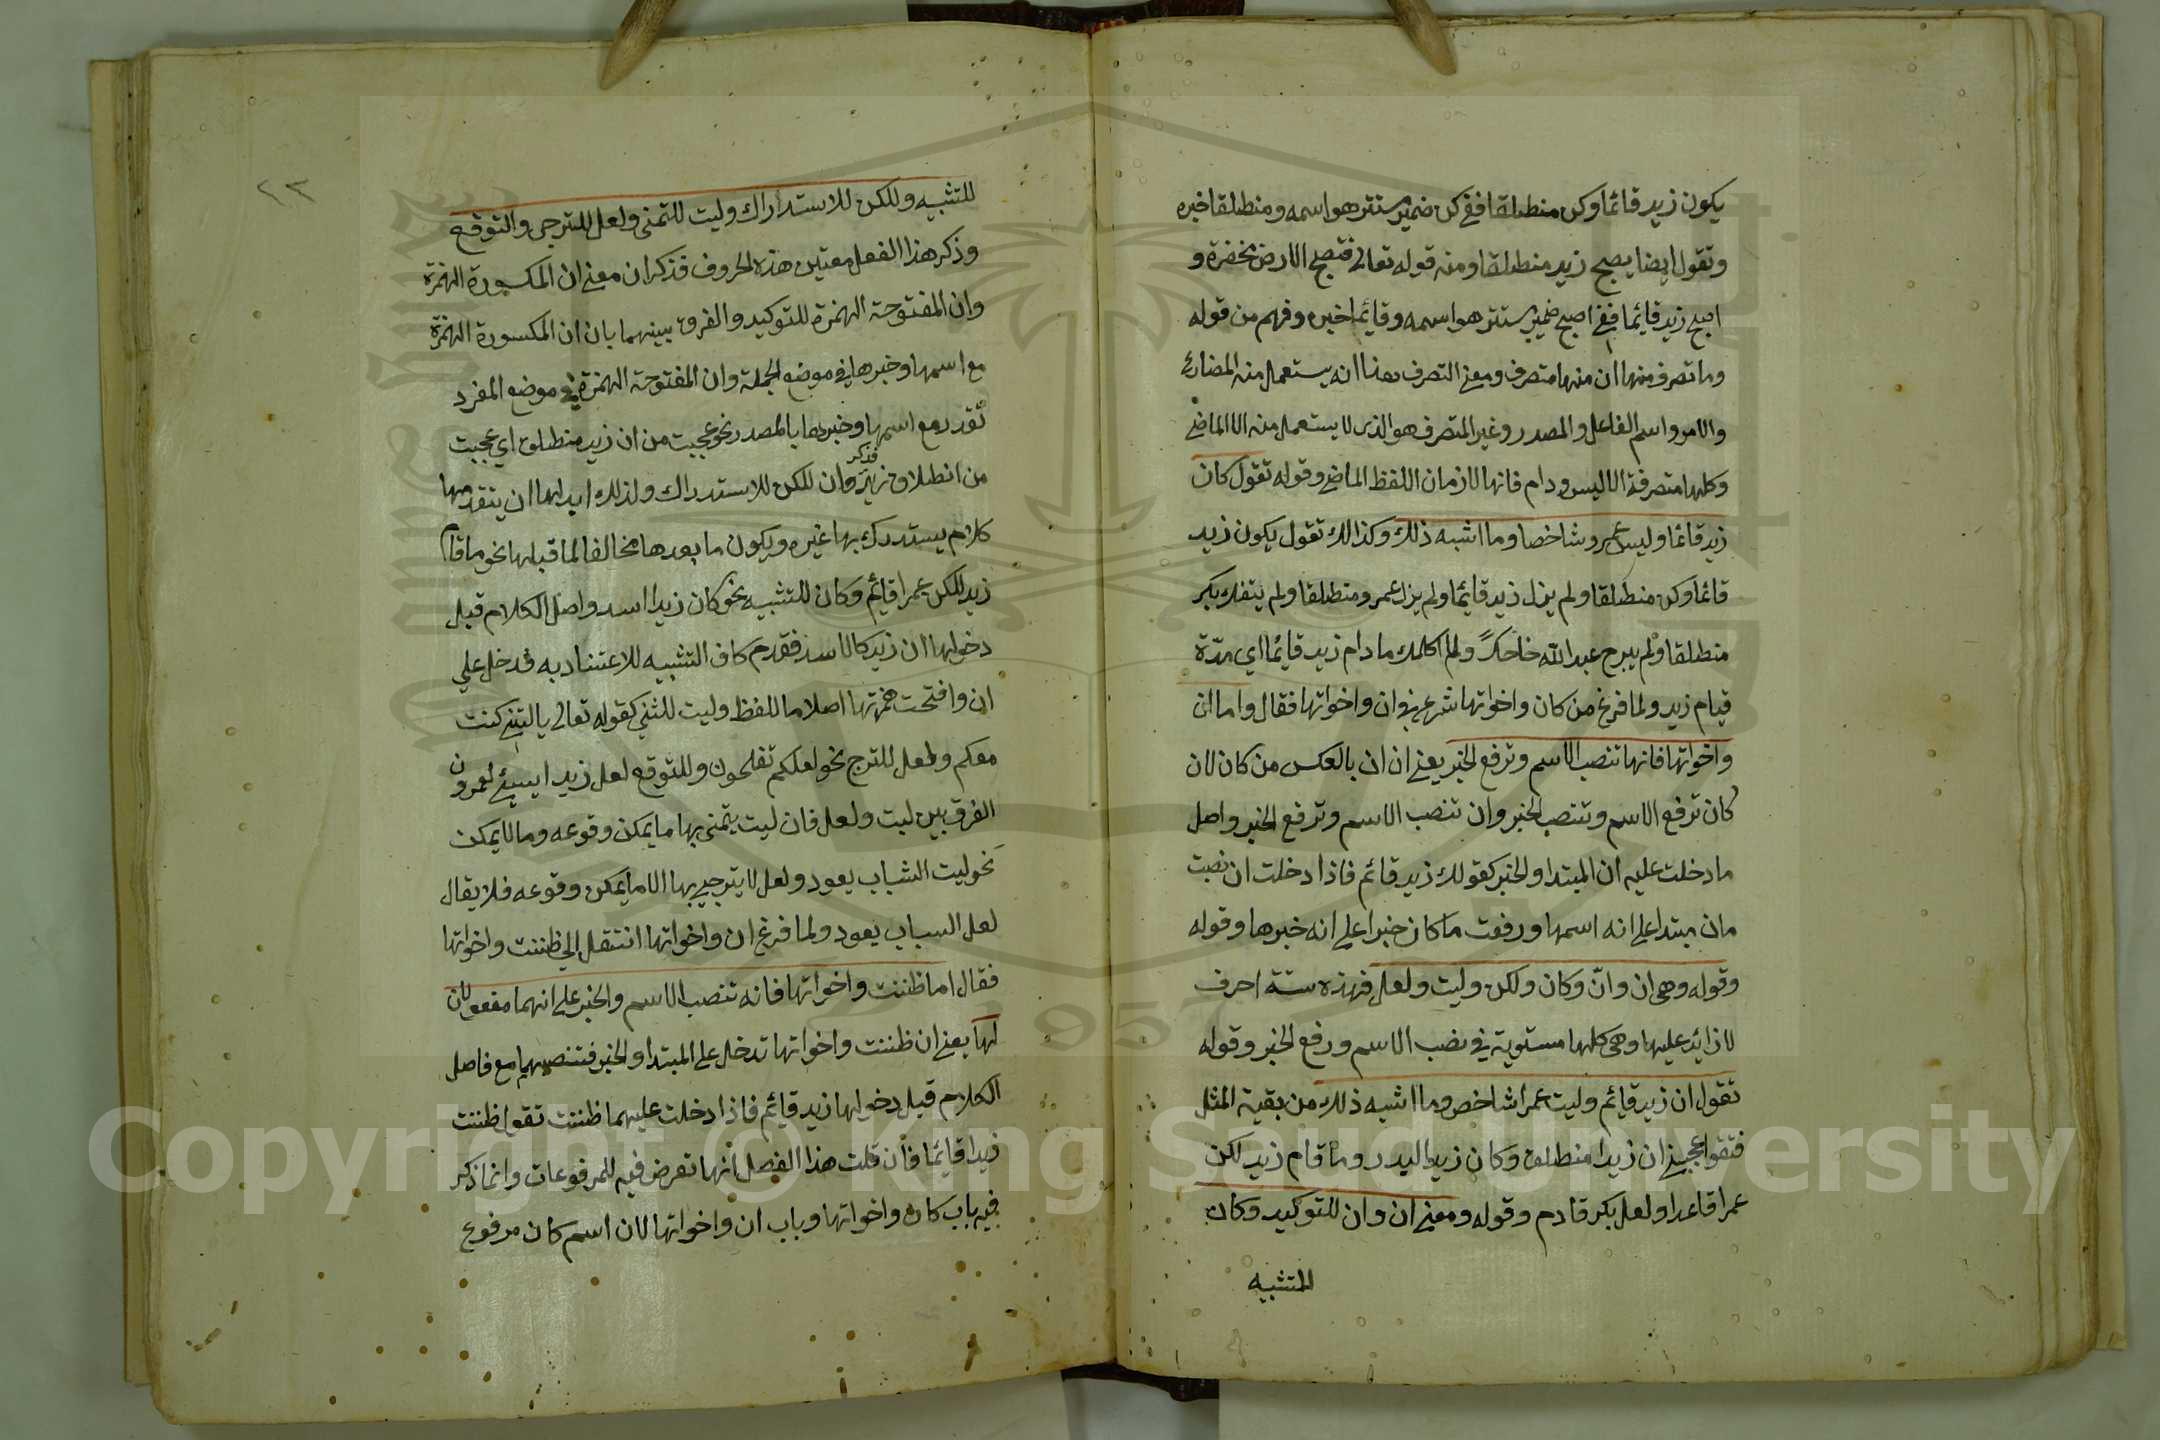 يكون زيد قائما وكن منطلقا ففي كن ضمير مستتر هو اسمه ومنطلقا خبره
وتقول ايضا يصبح زيد منطلقا ومنه قوله تعالى فتصبح الارض مخضرة و
اصبح زيد قايما ففي اصبح ضمير مستتر هو اسمه وقايما خبره وفهم من قوله
وما تصرف منها ان منها متصرف ومعنى التصرف هذا انه يستعمل منه المضارع
والامر واسم الفاعل والمصدر وغير المتصرف هو الذى لا يستعمل منه الا الماضي
وكلها متصرفة الا ليس ودام فانها لازمان اللفظ الماضي وقوله تقول كان
زيد قائما وليس عمرو شاخصا وما اشبه ذلك وكذالك تقول يكون زيد
قائما وكن منطلقا ولم يزل زيد قايما ولم يزل عمرو منطلقا ولم ينفك بكر
منطلقا ولم يبرح عبد الله ضاحكا ولم اكلمك ما دام زيد قايما اي مدّة
قيام زيد ولما فرغ من كان واخواتها شرع في ان واخواتها فقال واما ان
واخواتها فانها تنصب الاسم وترفع الخبر يعني ان ان بالعكس من كان لان
كان ترفع الاسم وتنصب الخبر وان تنصب الاسم وترفع الخبر واصل
ما دخلت عليه ان المبتدا والخبر كقولك زيد قائم فاذا دخلت ان نصبت
مان مبتدا على انه اسمها ورفعت ما كان خبرا على انه خبرها وقوله
وقوله وهى ان وانّ وكان ولكن وليت ولعل فهذه ستة احرف
لا زايد عليها وهى كلها مستوية في نصب الاسم ورفع الخبر وقوله
تقول ان زيد قايم وليت عمرا شاخص وما اشبه ذلك من بقية المثل
فتقول عجبني ان زيدا منطلق وكان زيدا البدر وما قام زيد لكن
عمرا قاعدا ولعل بكر قادم وقوله ومعنى ان وان للتوكيد وكان
للتشبيه
٢٣
للتشبيه وللكن للاستدراك وليت للتمنى ولعل للترجى والتوقع
وذكر هذا الفعل معنين هذه الحروف فذكر ان معنى ان المكسورة الهمزة
وان المفتوحة الهمزة للتوكيد والفرق بينهما بان ان المكسورة الهمزة
مع اسمها وخبرها في موضع الجملة وان المفتوحة الهمزة في موضع المفرد
تقدر مع اسمها وخبرها بالمصدر نحو عجبت من ان زيد منطلق اي عجبت
من انطلاق زيد فذكر وان للكن للاستدراك ولذلك ابدلها ان يتقدمها
كلام يستدرك بها غيره ويكون ما بعدها مخالفا لما قبلها نحو ما قام
زيد للكن عمرا قايم وكان للتشبيه نحو كان زيدا اسد واصل الكلام قبل
دخولها ان زيد كالاسد فقدم كاف التشبيه للاعتناد به فدخل علي
ان وافتحت همزتها اصلاما للفظ وليت للثني كقوله تعالى يا ليتني كنت
معكم ولعل للترج نحو لعلكم تفلحون وللتوقع لعل زيدا يسيئ لعمرو ن
الفرق بين ليت ولعل فان ليت يتمنى بها ما يمكن وقوعه وما لا يمكن
نحو ليت الشباب يعود ولعل لا يترجى بها الا ما يمكن وقوعه فلا يقال
لعل السباب يعود ولما فرغ ان واخواتها انتقل الي ظننت واخواتها
فقال اما ظننت واخواتها فانه تنصب الاسم والخبر على انهما مفعولان
لها يعني ان ظننت واخواتها تدخل على المبتدا والخبر فتنصبهم مع فاصل
الكلام قبل دخولها زيد قايم فاذا دخلت عليهما ظننت تقول ظننت
زيدا قايما فان قلت هذا الفصل انها تعرض فيه للمرفوعات وانما ذكر
فيه باب كان واخواتها وباب ان واخواتها لان اسم كان مرفوع
Copyright © King Saud University
1957